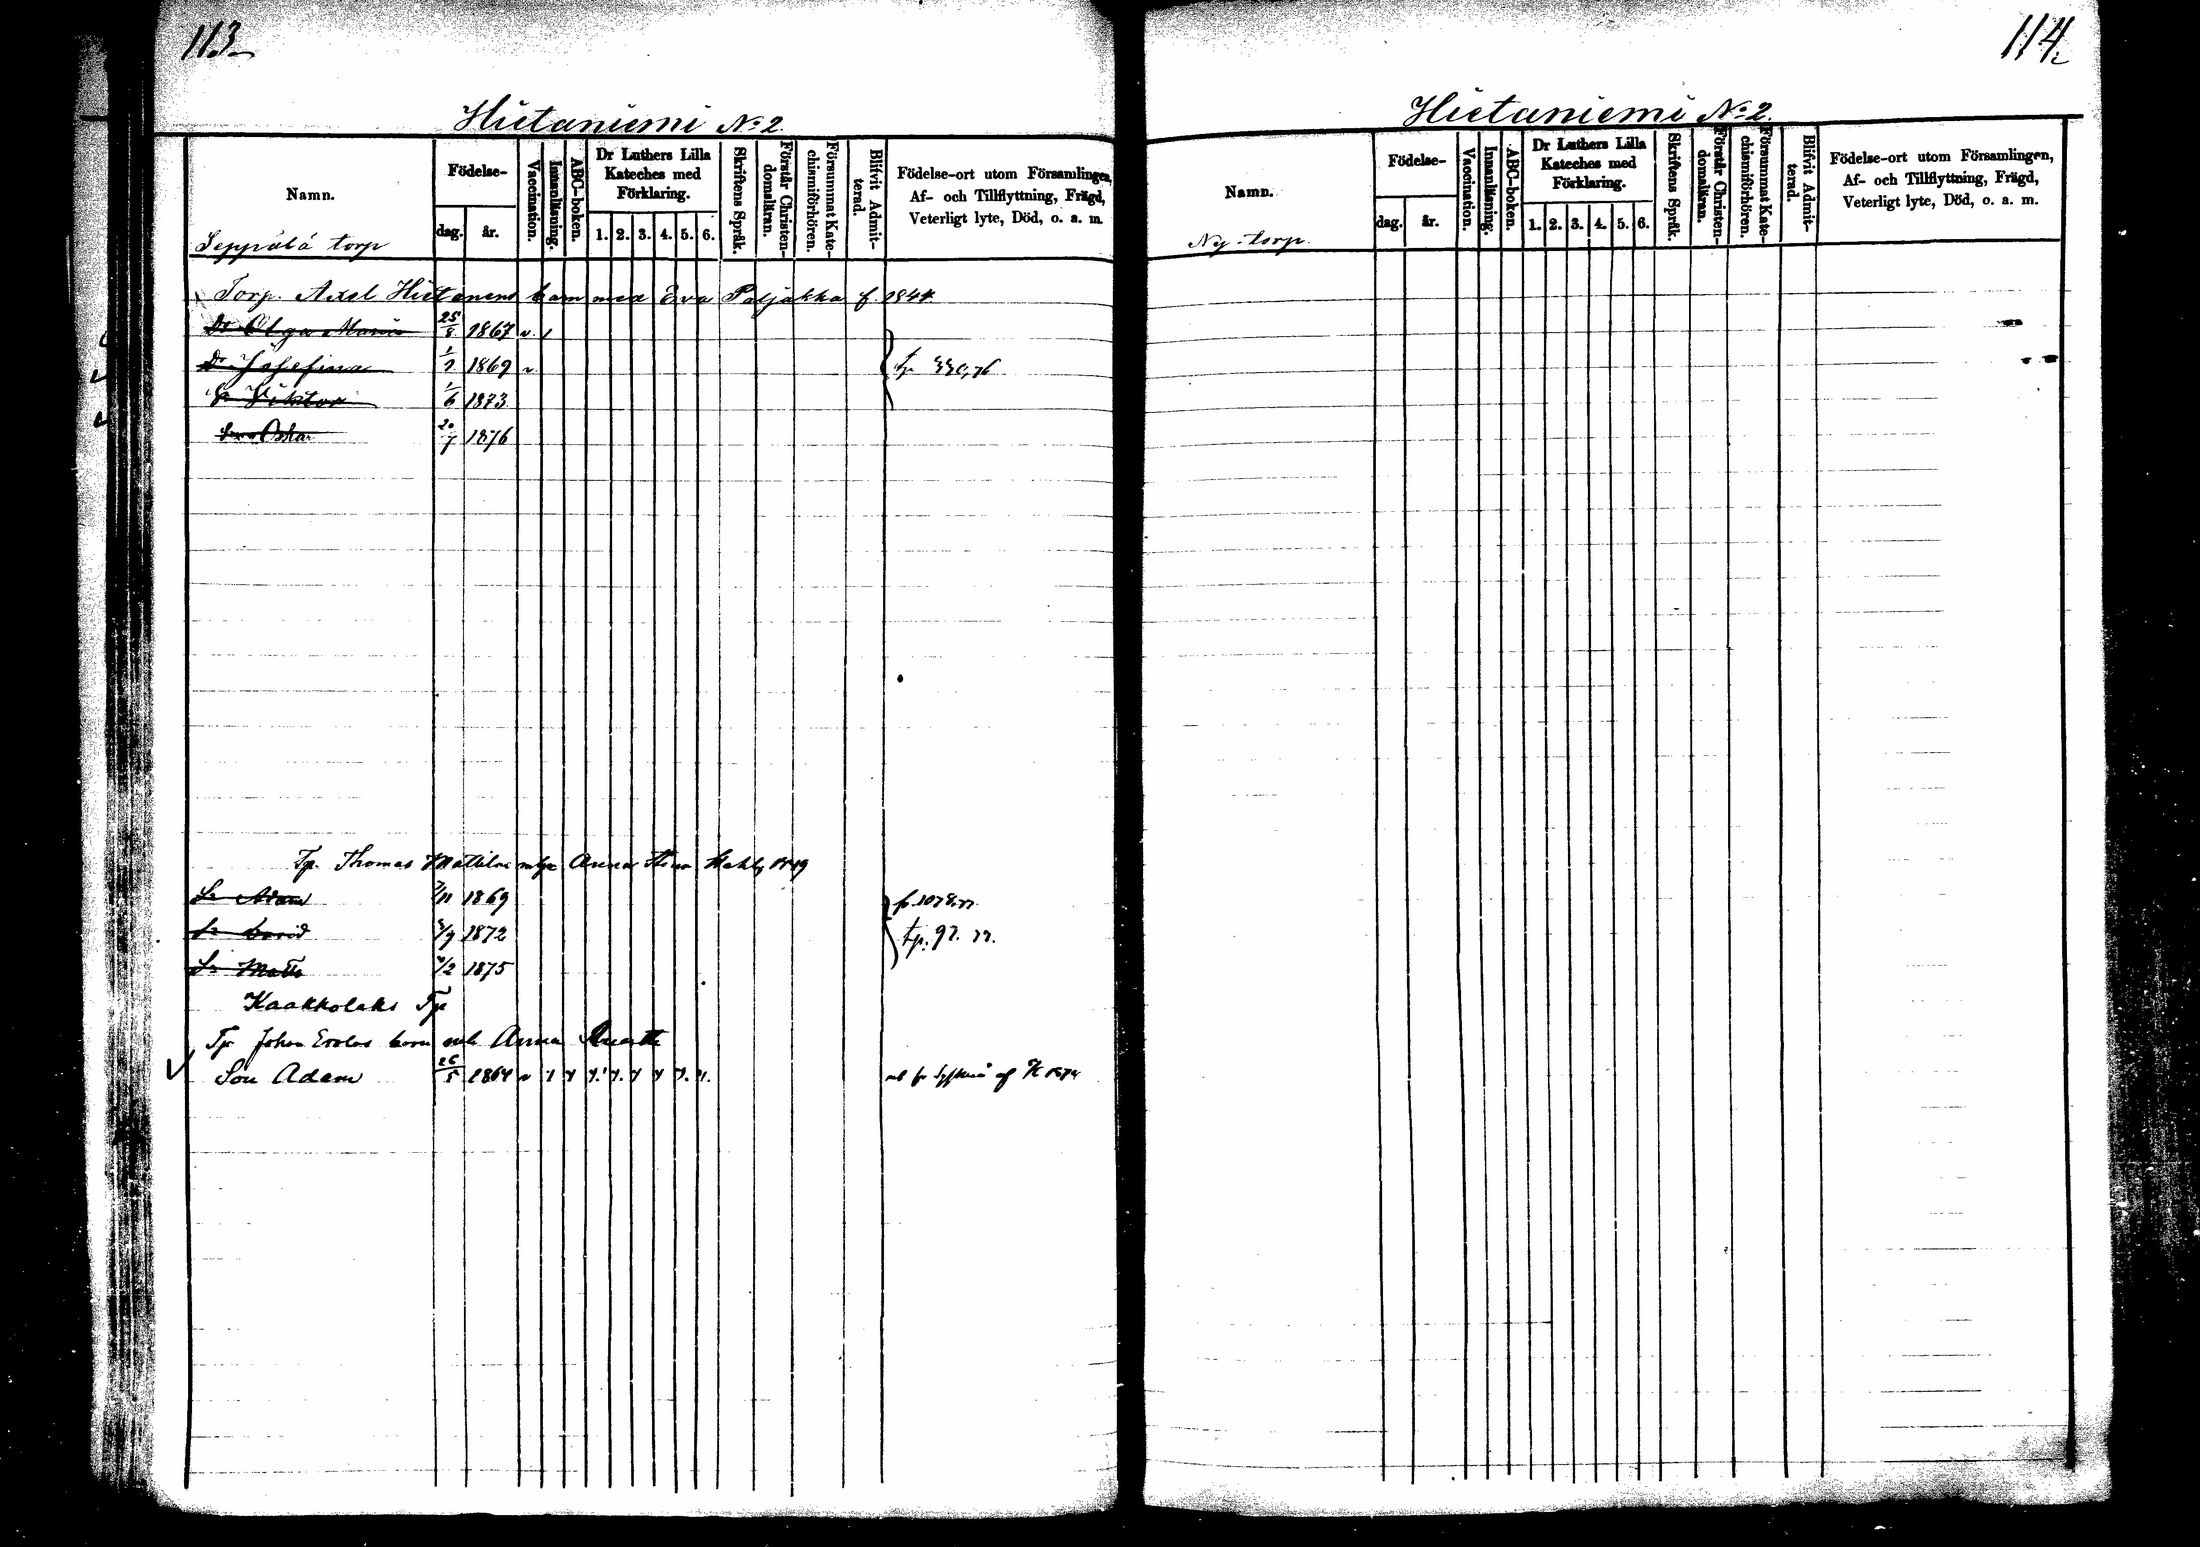 113
Hietaniemi No 2.
Namn.
Födelse-
dag. år.
Vaccination.
Innanläsning.
ABC-boken.
Dr Luthers Lilla Kateches med Förklaring.
1. 2. 3. 4. 5. 6.
Skriftens Språk.
Förstår Christen-domsläran.
Försummat Kate-chismiförhören.
Blifvit Admit-terad.
Födelse-ort utom Församlingen,
Af- och Tillflyttning, Frägd,
Veterligt lyte, Död, o. a. m.
Seppälä torp
Torp. Axel Hietanens barn med Eva Paljakka f. 1844
Dr Olga Maria 25/8 1867 v
Dr Josefina 1869 v
Sn Viktor 1/6 1873
Son Oskar 20/7 1876
Tp. Thomas Mattila Anna Stina 1849
Sn Adam /11 1869
Sn David /9 1872 tp. 97. 77.
Sn Matts /2 1875
Kaakkolaks Tp
Tp Johan barn Anna
Son Adam 26/5 1864 v
114
Hietaniemi No 2.
Namn.
Födelse-
dag. år.
Vaccination.
Innanläsning.
ABC-boken.
Dr Luthers Lilla Kateches med Förklaring.
1. 2. 3. 4. 5. 6.
Skriftens Språk.
Förstår Christen-domsläran.
Försummat Kate-chismiförhören.
Blifvit Admit-terad.
Födelse-ort utom Församlingen,
Af- och Tillflyttning, Frägd,
Veterligt lyte, Död, o. a. m.
Ny-torp.